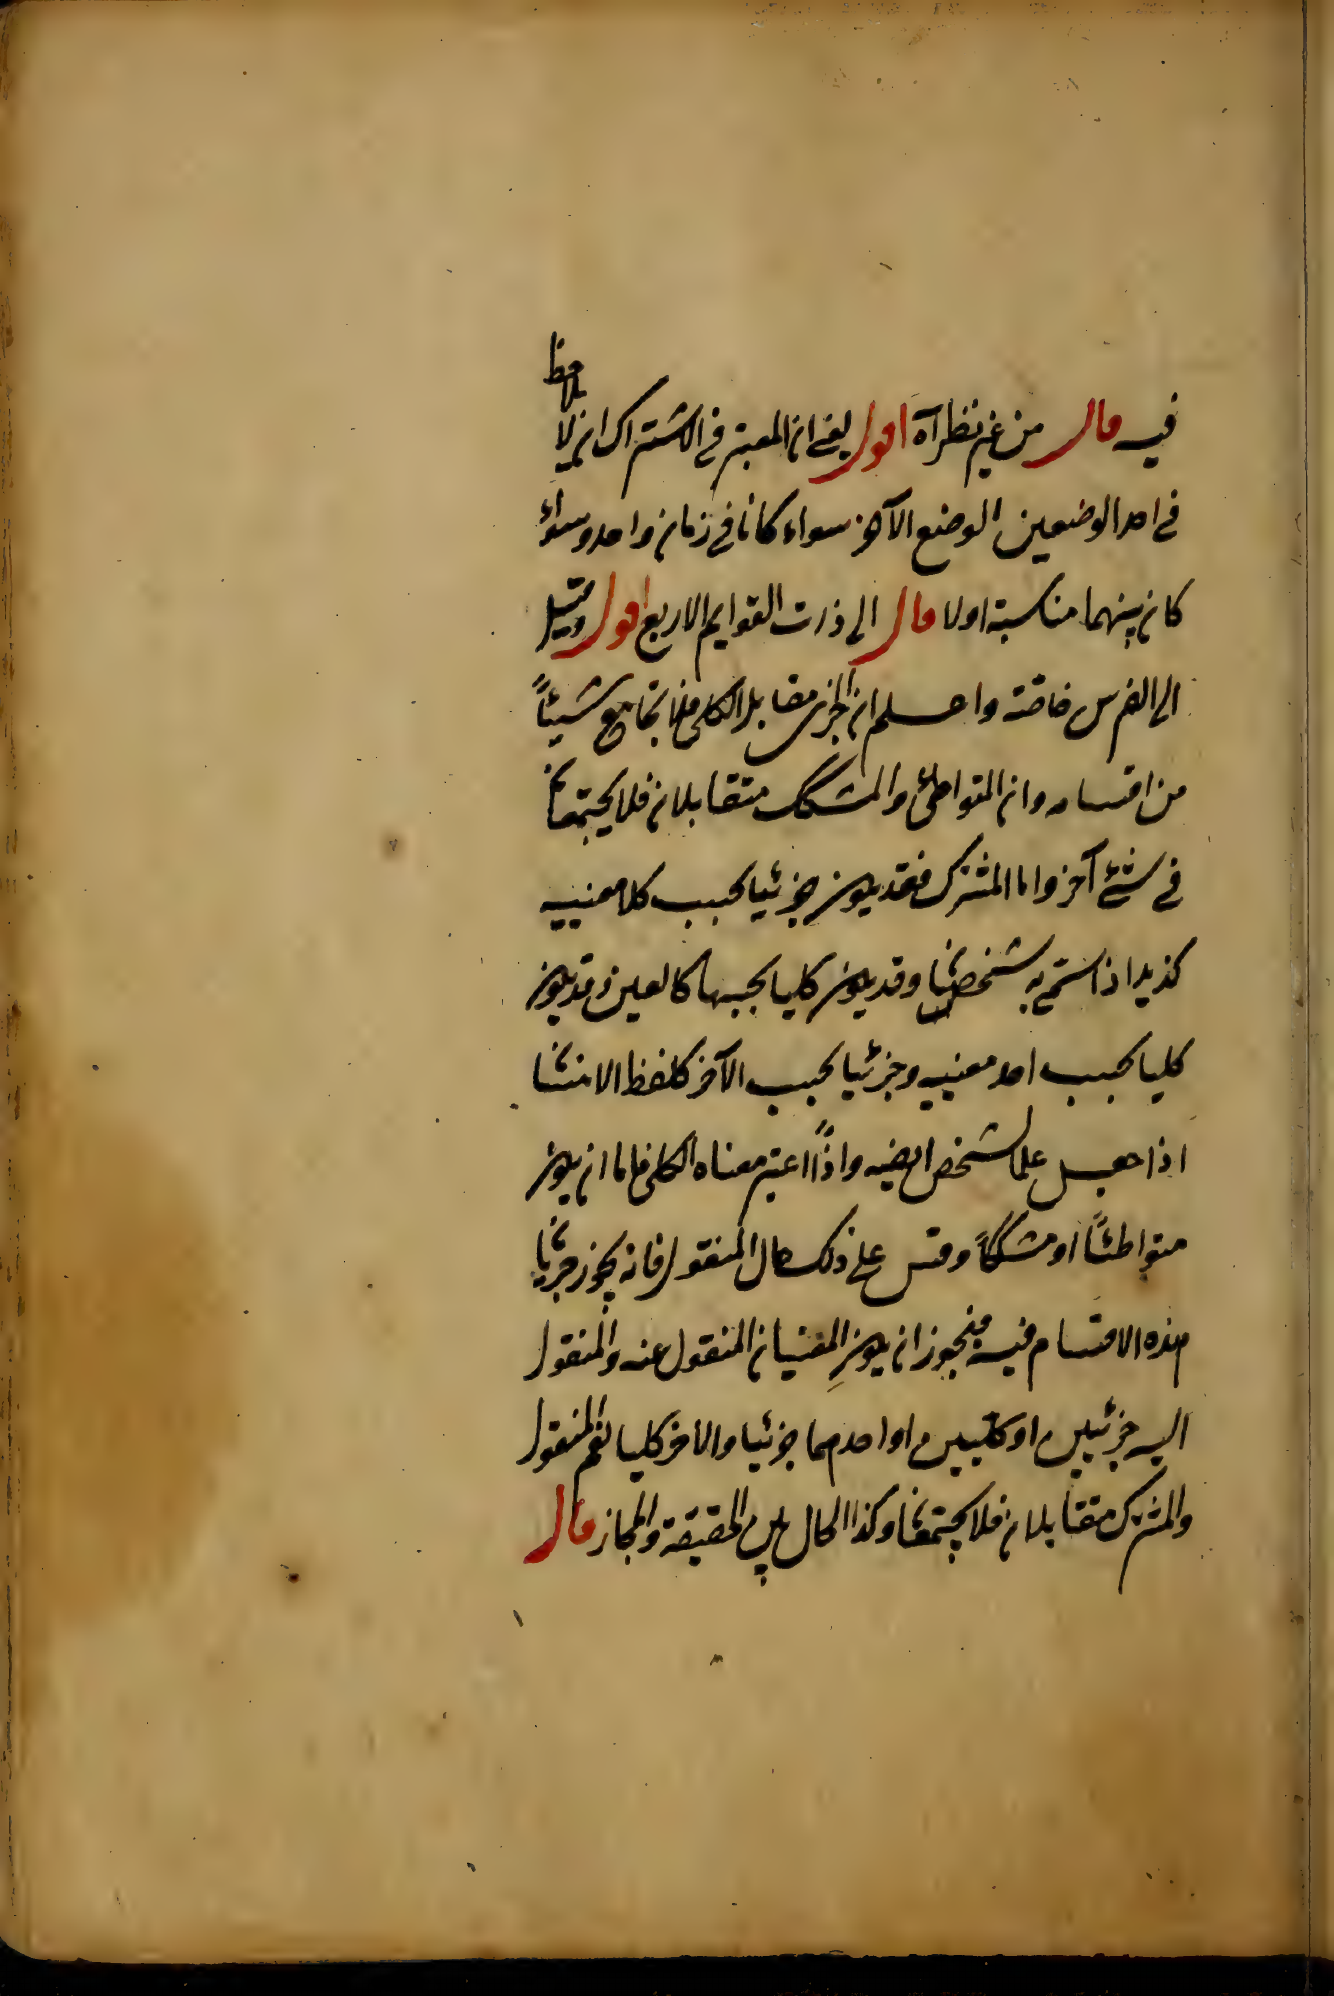 فيه قال من غير نظر آه اقول يعنى ان المعتبر فى الاشتراك ان لا يلاحظ
فى احد الوضعين الوضع الآخر سواء كانا فى زمان واحد وسواء
كان بينهما مناسبة اولا قال الى ذات القوايم الاربع اقول وقيل
الى الفرس خاصة واعلم ان الجزئى مقابل الكلى فلا يجامع شيئاً
من اقسامه وان المتواطئ والمشكك متقابلان فلا يجتمعان
فى شئ آخر واما المشترك فقد يكون جزئيا بحسب كلا معنييه
كزيد اذا سمى به شخصان وقد يكون كليا بحسبهما كالعين وقد يكون
كليا بحسب احد معنييه وجزئيا بحسب الآخر كلفظ الانسان
اذا جعل علما لشخص ايضيه واذا اعتبر معناه الكلى فاما ان يكون
متواطئاً او مشككاً وقس على ذلك حال المنقول فانه يجوز جريان
هذه الاقسام فيه فيجوز ان يكون المعنيان المنقول عنه والمنقول
اليه جزئيين او كليين او احدهما جزئيا والاخر كليا نعم المنقول
والمشترك متقابلان فلا يجتمعان وكذا الحال بين الحقيقة والمجاز قال